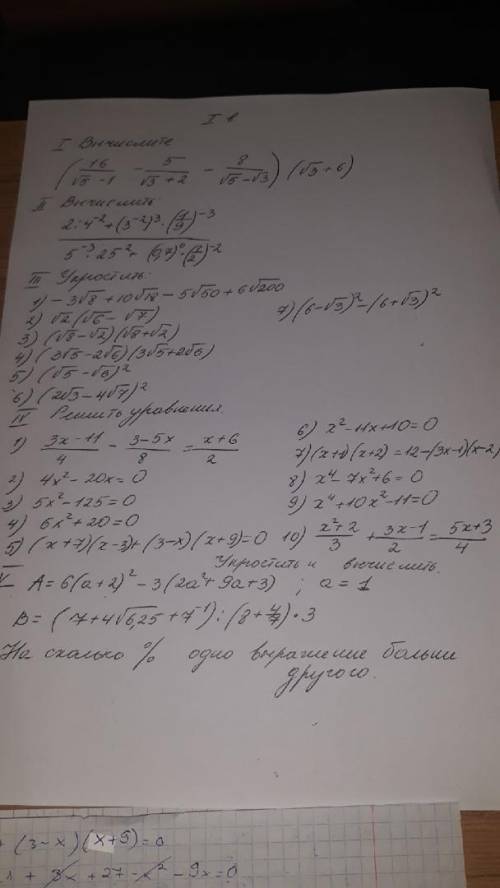 I в
I Вычислите
(16/(√5-1) - 5/(√3+2) - 8/(√5-√3)) (√3+6)
II Вычислить:
(2:4⁻²+(3⁻²)³·(1/9)⁻³)/(5⁻³:25⁻²+(0,7)⁰·(1/2)⁻²)
III Упростить:
1) -3√8+10√18-5√50+6√200
2) √2(√6-√7)
3) (√8-√2)(√8+√2)
4) (3√5-2√6)(3√5+2√6)
5) (√5-√3)²
6) (2√3-4√7)²
7) (6-√3)²-(6+√3)²
IV Решить уравнения.
1) (3x-11)/4 - (3-5x)/8 = (x+6)/2
2) 4x²-20x=0
3) 5x²-125=0
4) 6x²+20=0
5) (x+7)(x-3)+(3-x)(x+9)=0
6) x²-11x+10=0
7) (x+1)(x+2)=12-(3x-1)(x-2)
8) x⁴-7x²+6=0
9) x⁴+10x²-11=0
10) (x²+2)/3 + (3x-1)/2 = (5x+3)/4
V Упростить и вычислить.
A=6(a+2)²-3(2a²+9a+3) ; a=1
B=(7+4√6,25+7⁻¹):(8+4/7)·3
На сколько % одно выражение больше
другого.
+ (3-x)(x+5)=0
+ 3x+27-x²-9x=0